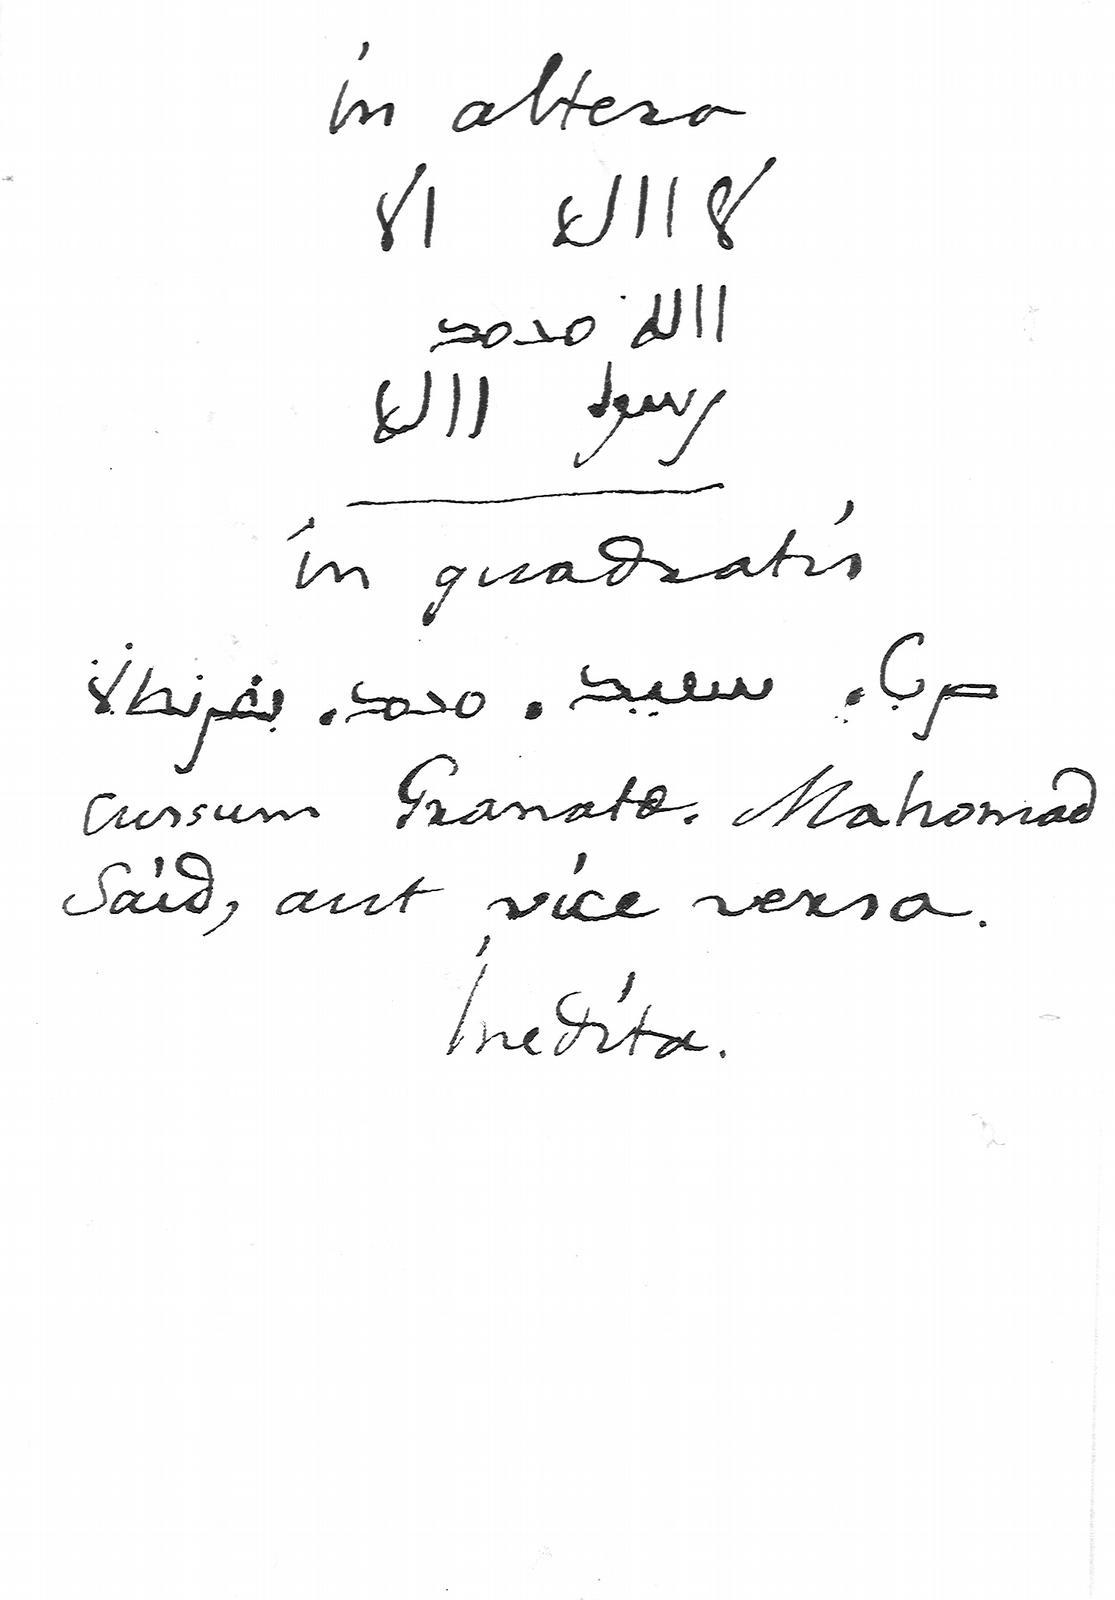 in altera
لا اله الا
الله محمد
رسول الله
in quadratis
ضرب. سعيد. محمد. بغرناطة
cussum Granatæ. Mahomad
Said, aut vice versa.
Inedita.